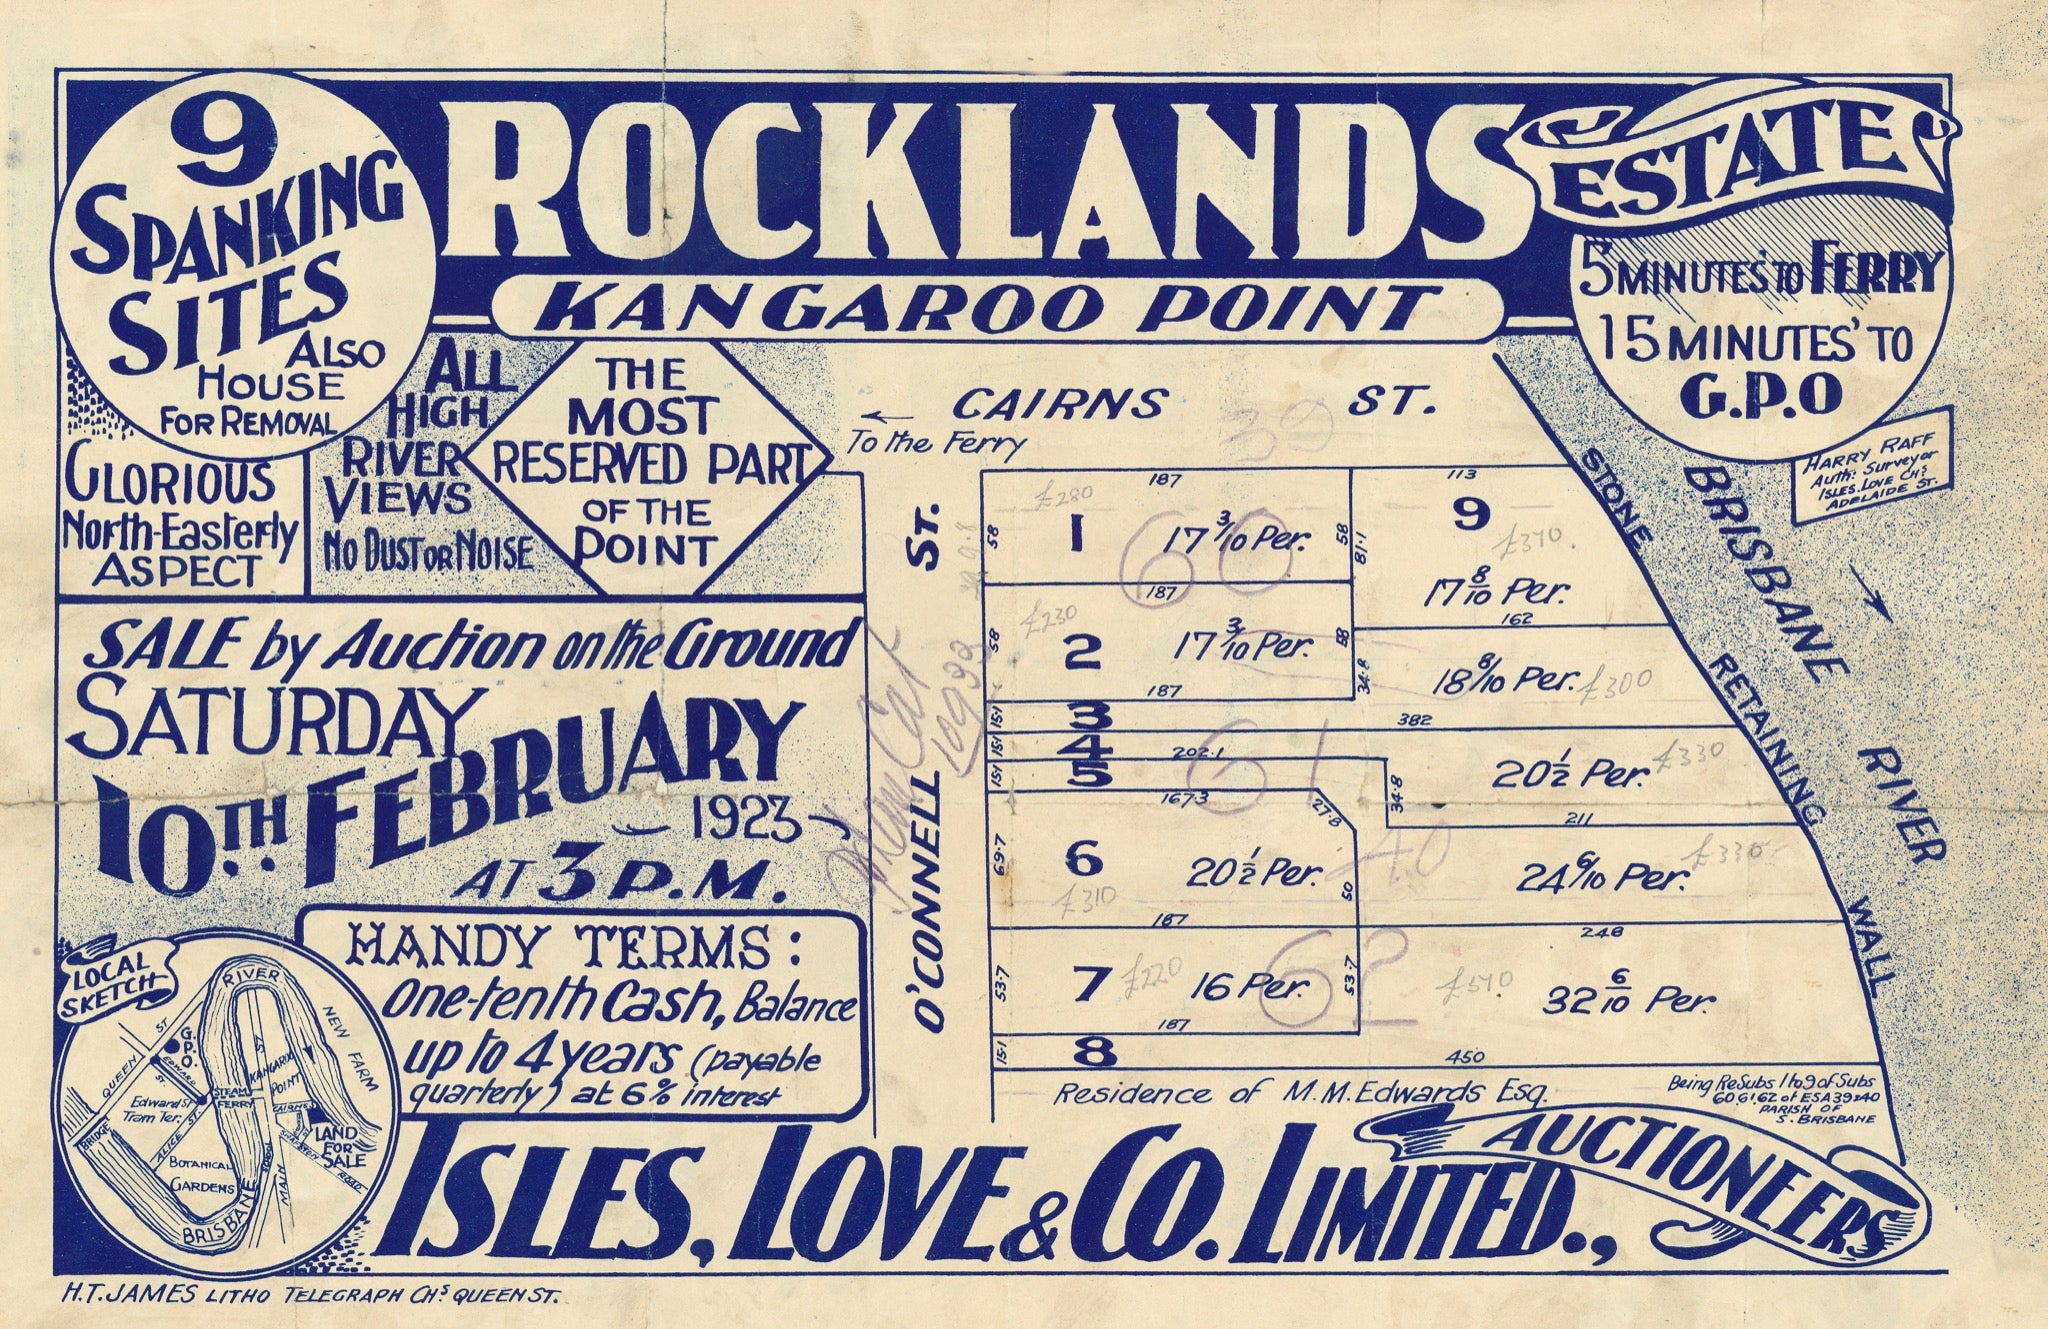 9
SPANKING
SITES
ALSO
HOUSE
FOR REMOVAL
ROCKLANDS
ESTATE
KANGAROO POINT
5 MINUTES' TO FERRY
15 MINUTES' TO
G.P.O
HARRY RAFF
Auth: Surveyor
ISLES. LOVE CHS
ADELAIDE ST.
GLORIOUS
North-Easterly
ASPECT
ALL
HIGH
RIVER
VIEWS
NO DUST OR NOISE
THE
MOST
RESERVED PART
OF THE
POINT
SALE by Auction on the Ground
SATURDAY
10TH FEBRUARY
1923
AT 3 P.M.
HANDY TERMS:
One-tenth Cash, Balance
up to 4 years (payable
quarterly) at 6% interest
LOCAL
SKETCH
RIVER
NEW FARM
QUEEN ST
G.P.O.
EDWARD ST
KANGAROO
POINT
ST
STEAM
FERRY
CAIRNES
Edward St
Tram Ter.
BRIDGE
ALICE ST.
LAND
FOR
SALE
ROAD
BOTANICAL
GARDENS
MAIN
BRISBANE
CAIRNS ST.
← To the Ferry
O'CONNELL ST.
39
187
113
58
1
£280
17 3/10 Per.
58
81.1
9
£370.
17 8/10 Per.
60
187
162
58
2
£230
17 3/10 Per.
58
34.8
18 8/10 Per.
£300
187
15.1
3
382
15.1
4
202.1
20 1/2 Per.
£330
15.1
5
61
34.8
167.3
27.8
211
69.7
6
£310
20 1/2 Per.
50
40
24 6/10 Per.
£330
187
248
53.7
7
£220
16 Per.
53.7
62
£570.
32 6/10 Per.
187
15.1
8
450
STONE RETAINING WALL
BRISBANE RIVER
Residence of M.M. Edwards Esq.
Being ReSubs 1 to 9 of Subs
60,61,62 of ESA 39&40
PARISH OF
S. BRISBANE
ISLES, LOVE & CO. LIMITED.,
AUCTIONEERS
H.T. JAMES LITHO TELEGRAPH CHS QUEEN ST.